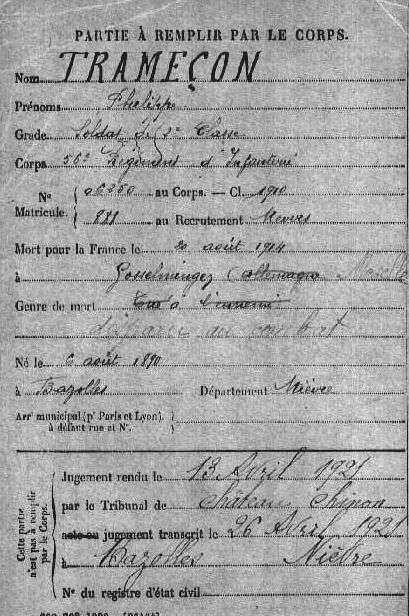 PARTIE À REMPLIR PAR LE CORPS.
Nom TRAMEÇON
Prénoms
Grade Soldat de 2e Classe
Corps 56e Régiment d'Infanterie
No Matricule. 06360 au Corps. — Cl. 1910
881 au Recrutement Nevers
Mort pour la France le 20 août 1914
à Gosselmingen (Allemagne Moselle
Genre de mort Tué à l'ennemi
disparu au combat
Né le 6 août 1890
à Bazolles Département Nièvre
Arrt municipal (pr Paris et Lyon),
à défaut rue et No.
Cette partie n'est pas à remplir par le Corps.
Jugement rendu le 13 Avril 1921
par le Tribunal de Château Chinon
acte ou jugement transcrit le 26 Avril 1921
à Bazolles Nièvre
No du registre d'état civil